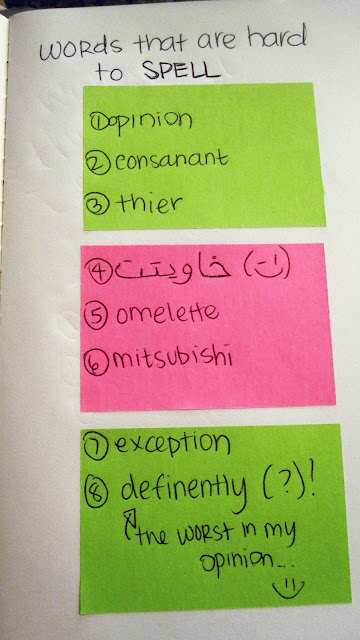 WORDS that are hard
to SPELL
① opinion
② consanant
③ thier
④ خاويتت (ت)
⑤ omelette
⑥ mitsubishi
⑦ exception
⑧ definently (?)!
the WORST in my
opinion...